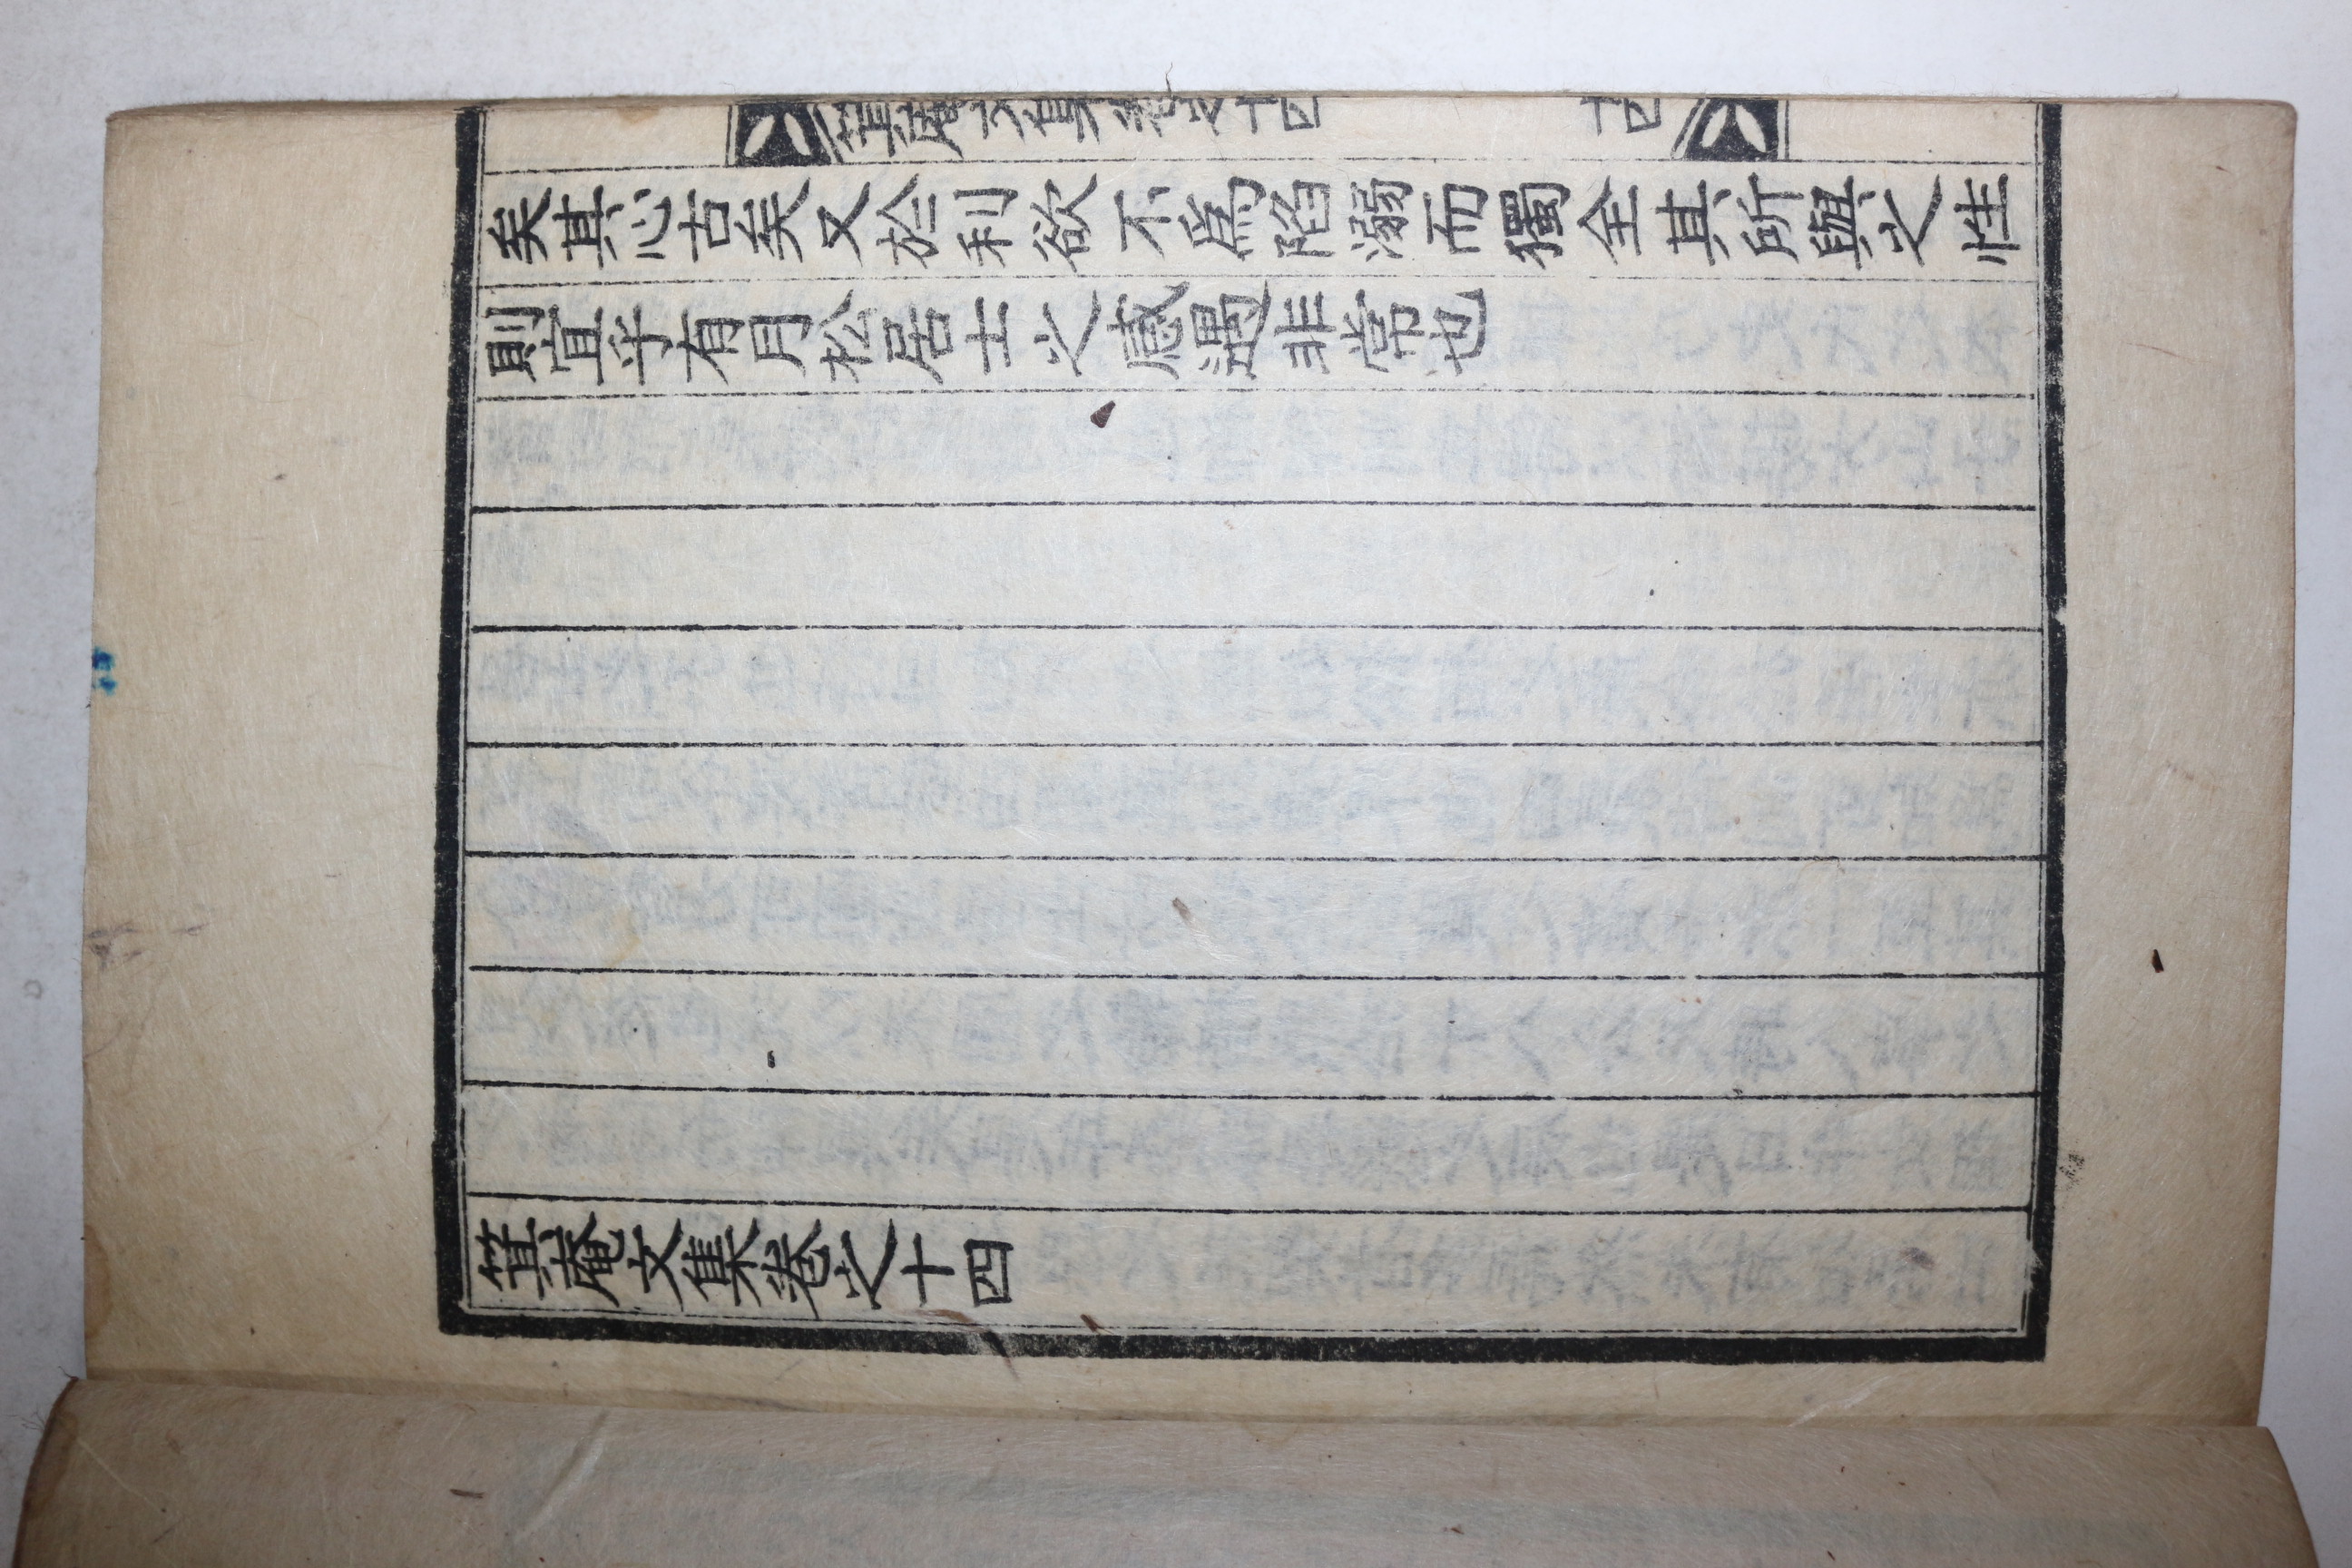 箕庵文集卷之十四 十四
矣其心古矣又於利欲不爲陷溺而獨全其所與之性
則宜乎有月松居士之感遇非常也
箕庵文集卷之十四